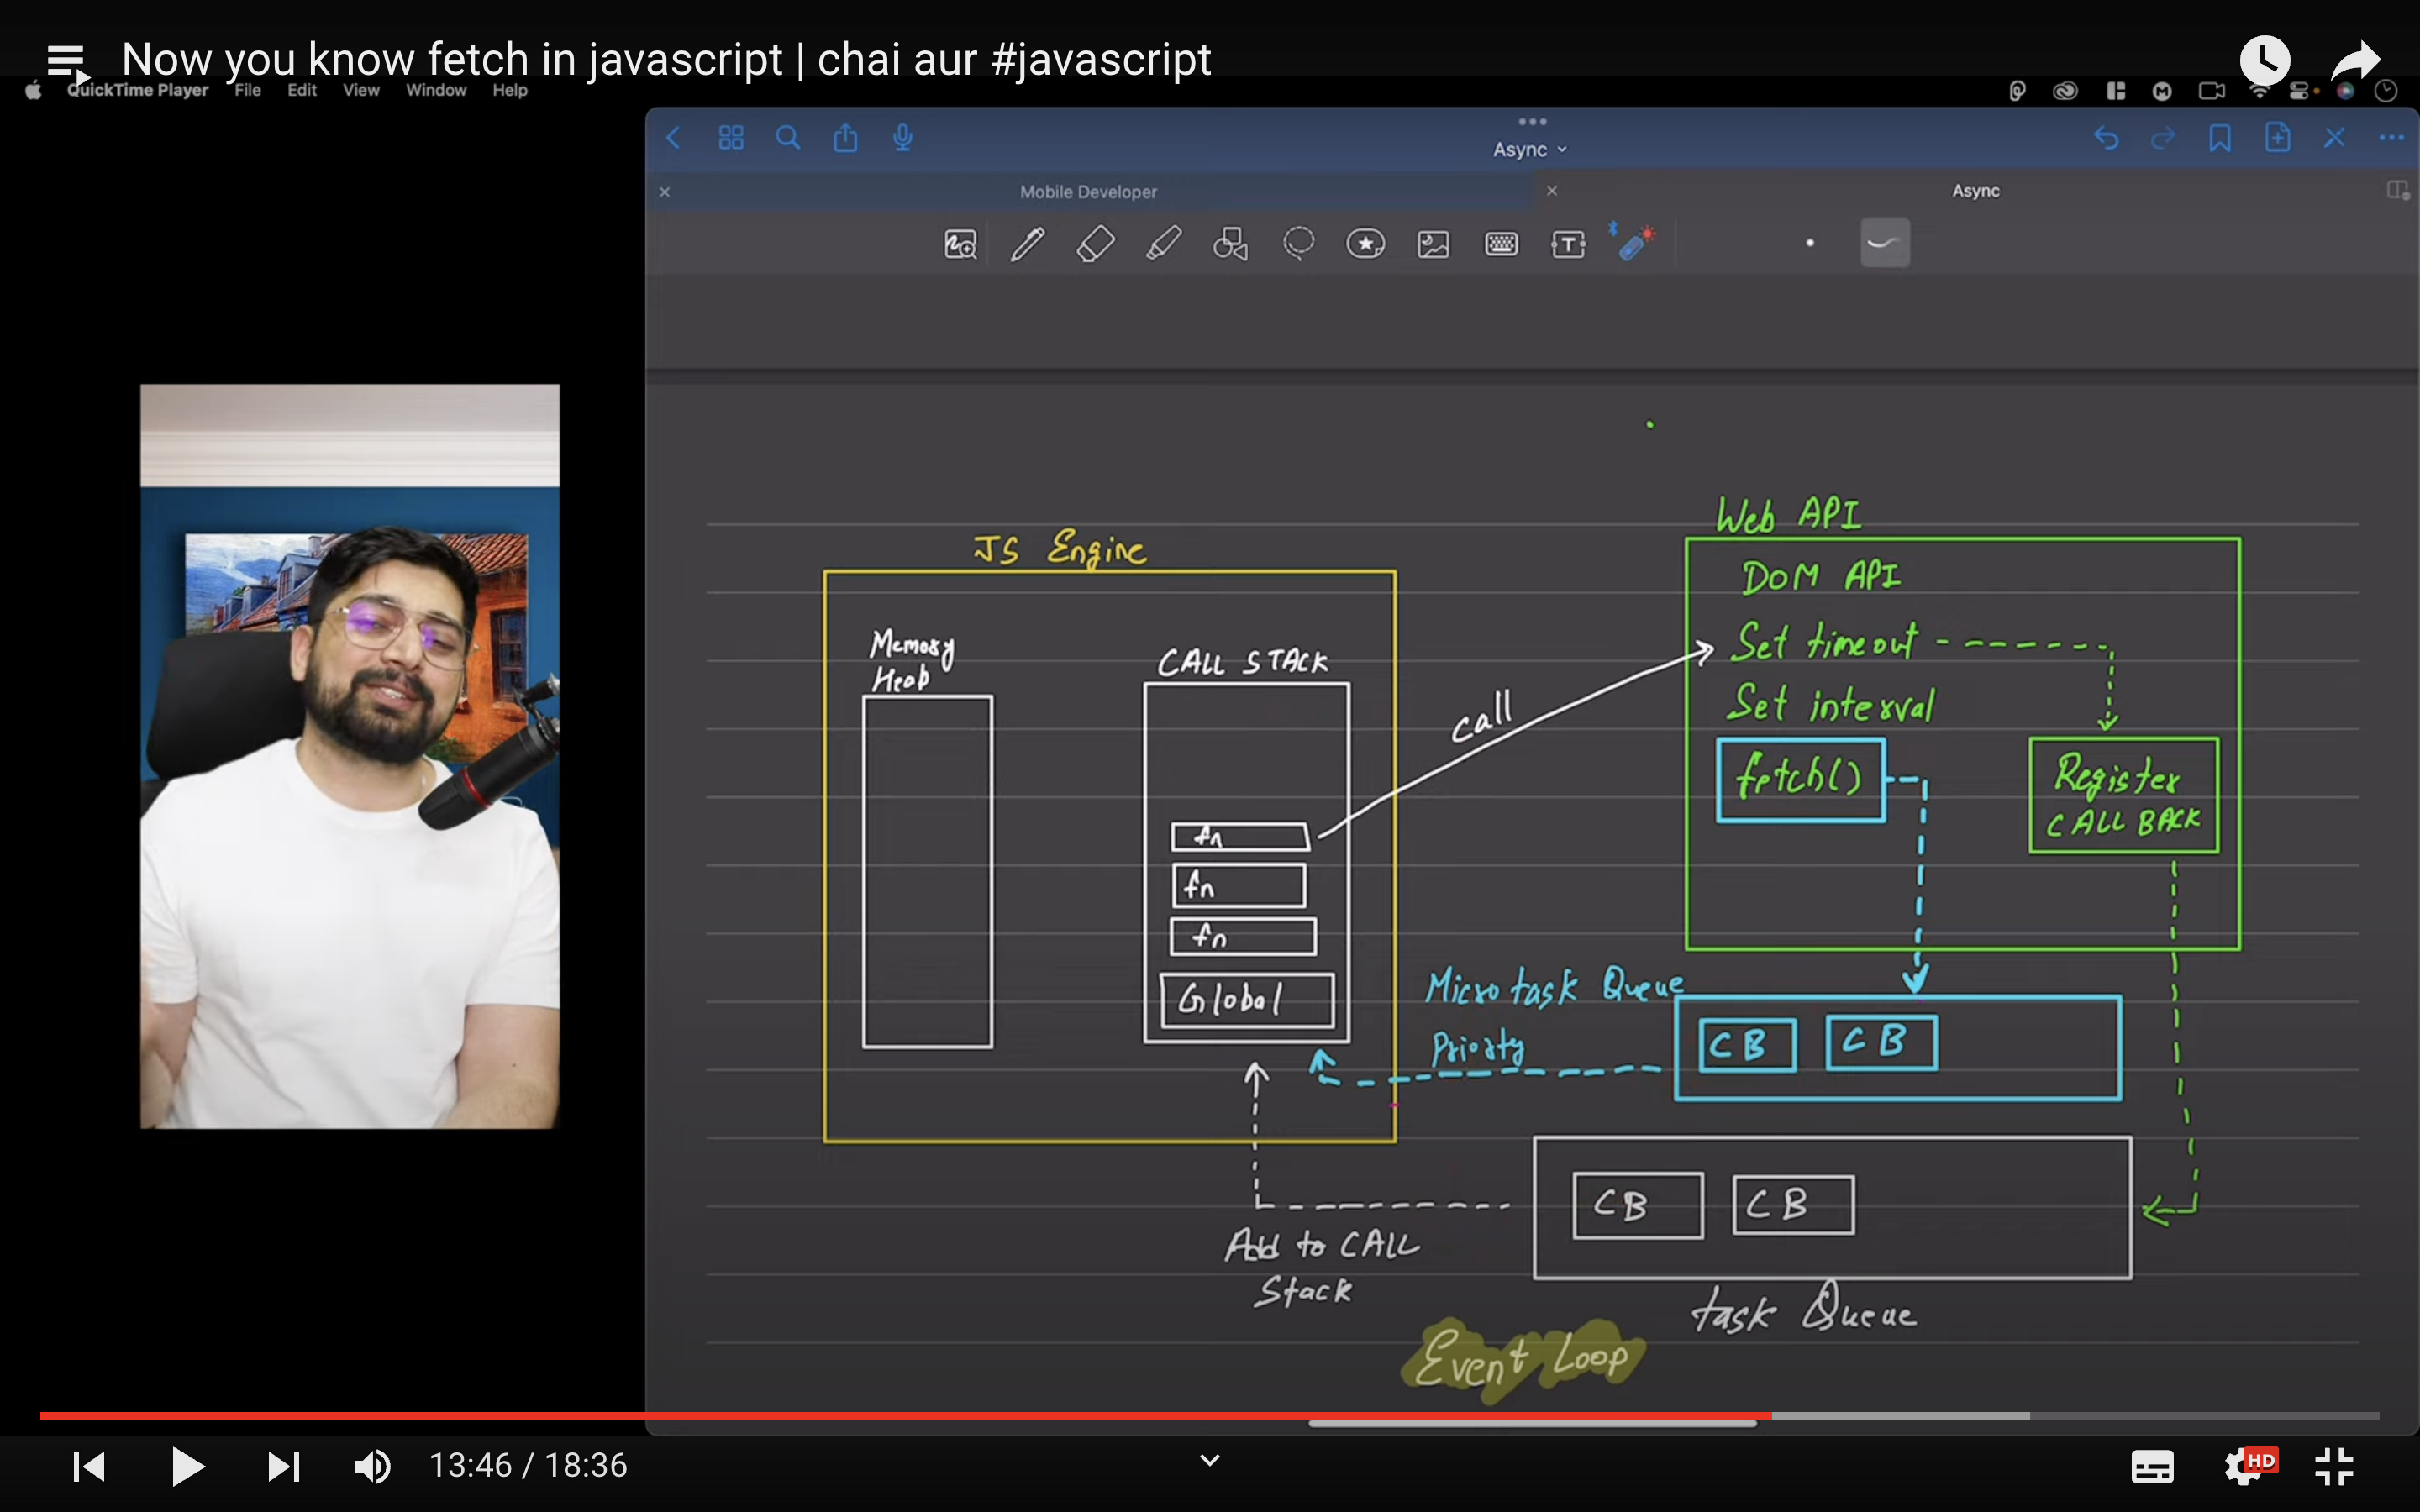 Now you know fetch in javascript | chai aur #javascript
QuickTime Player File Edit View Window Help
Async
Mobile Developer
Async
JS Engine
Memory
Heap
CALL STACK
fn
fn
fn
Global
call
Web API
DOM API
Set timeout
Set interval
fetch()
Register
CALL BACK
Microtask Queue
Priority
CB CB
CB CB
Add to CALL
Stack
task Queue
Event Loop
13:46 / 18:36
HD